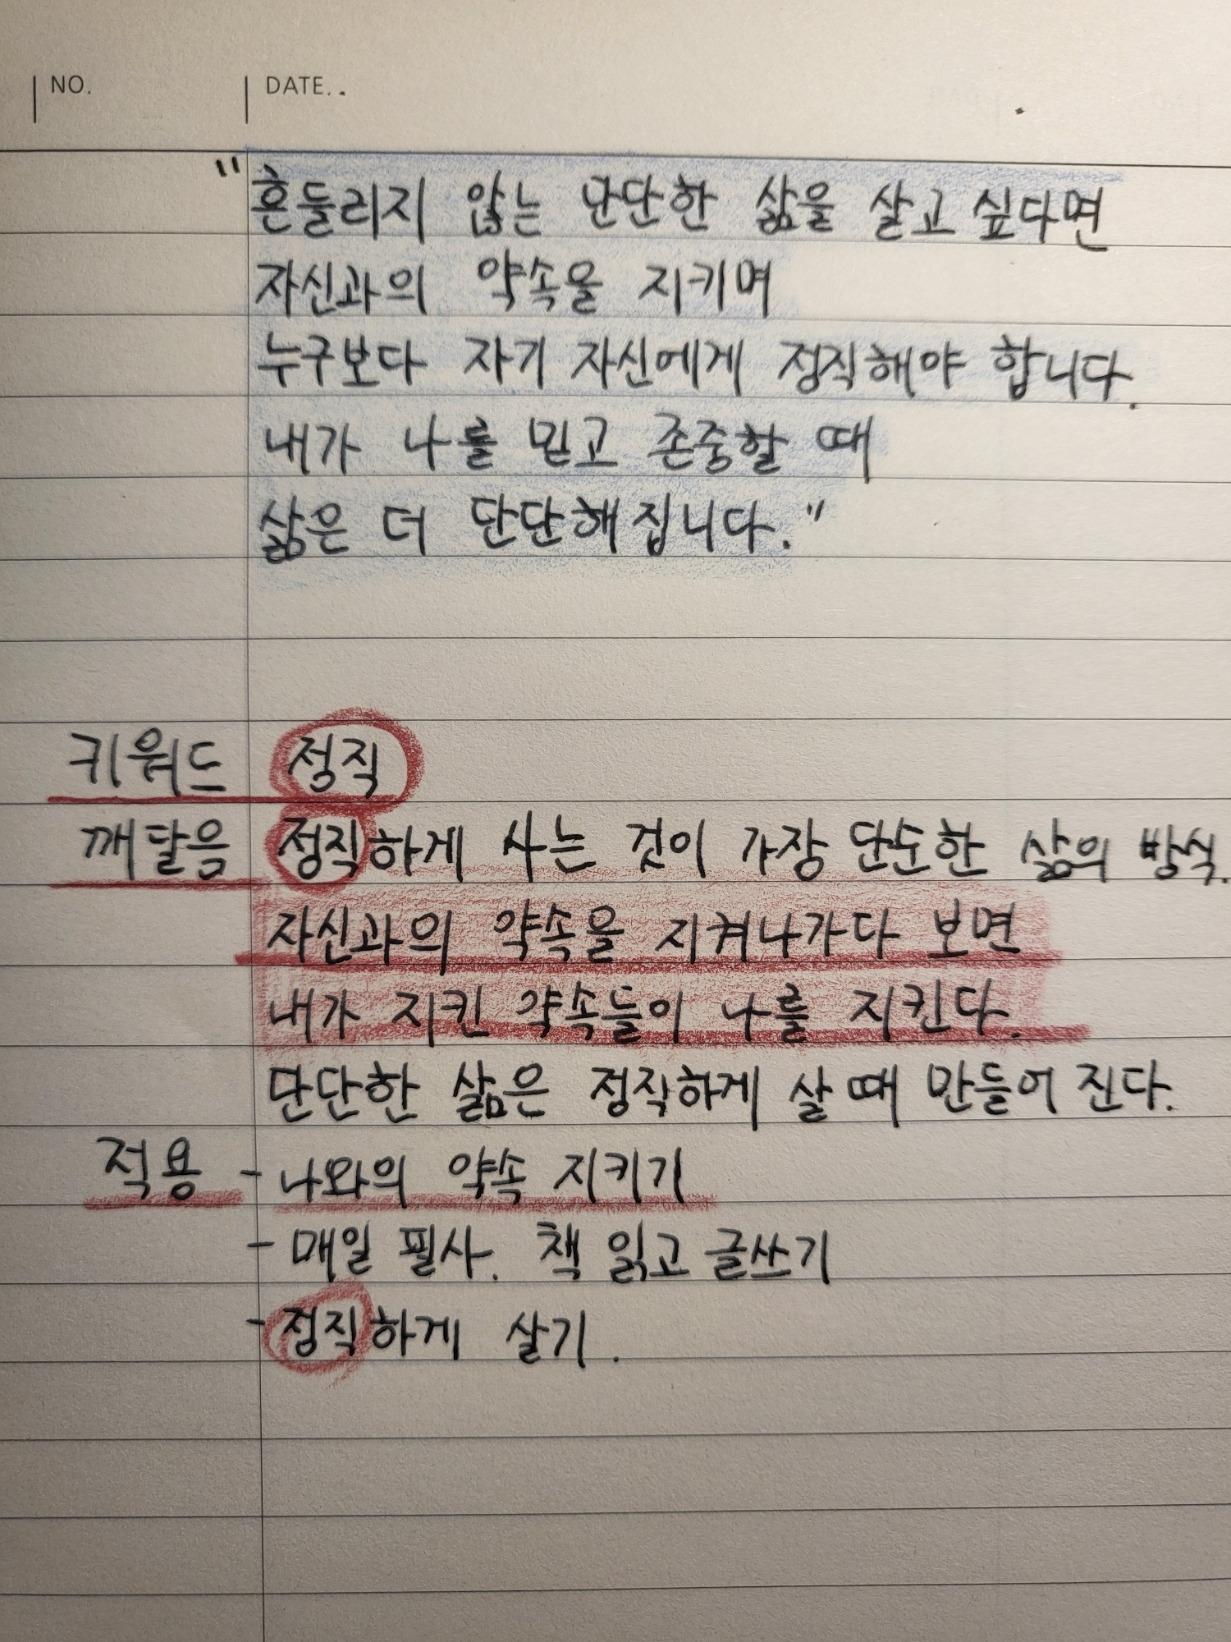 NO. DATE. .
"흔들리지 않는 단단한 삶을 살고 싶다면
자신과의 약속을 지키며
누구보다 자기 자신에게 정직해야 합니다.
내가 나를 믿고 존중할 때
삶은 더 단단해집니다."
키워드 정직
깨달음 정직하게 사는 것이 가장 단순한 삶의 방식.
자신과의 약속을 지켜나가다 보면
내가 지킨 약속들이 나를 지킨다.
단단한 삶은 정직하게 살 때 만들어 진다.
적용 - 나와의 약속 지키기
- 매일 필사. 책 읽고 글쓰기
- 정직하게 살기.